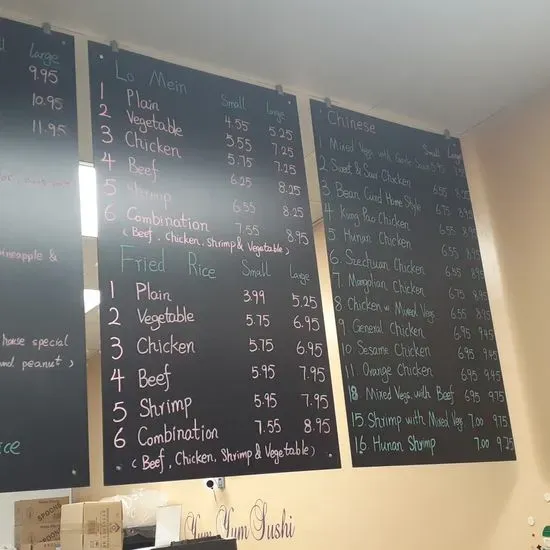 Large
9.95
10.95
11.95
ineapple &
house special
nd peanut )
ice
Lo Mein
Small Large
1 Plain 4.55 5.25
2 Vegetable 5.55 7.25
3 Chicken 5.75 7.25
4 Beef 6.25 8.25
5 Shrimp 6.55 8.25
6 Combination 7.55 8.95
( Beef, Chicken, Shrimp & Vegetable )
Fried Rice Small Large
1 Plain 3.99 5.25
2 Vegetable 5.75 6.95
3 Chicken 5.75 6.95
4 Beef 5.95 7.95
5 Shrimp 5.95 7.95
6 Combination 7.55 8.95
( Beef, Chicken, Shrimp & Vegetable )
Chinese
Small Large
1 Mixed Vegs with Garlic Sauce 5.95
2. Sweet & Sour Chicken 6.55
3 Bean Curd Home Style 6.75 8.95
4 Kung Pao Chicken
5 Hunan Chicken 6.55
6. Szechuan Chicken 6.55
7. Mongolian Chicken
8 Chicken w Mixed Vegs 6.75
9. General Chicken 6.55
10 Sesame Chicken 6.95 9.45
11 Orange Chicken 6.95 9.45
18 Mixed Vegs with Beef 6.95 9.75
15. Shrimp with Mixed Veg 7.00 9.75
16. Hunan Shrimp 7.00 9.25
SPOONS
Yum Yum Sushi